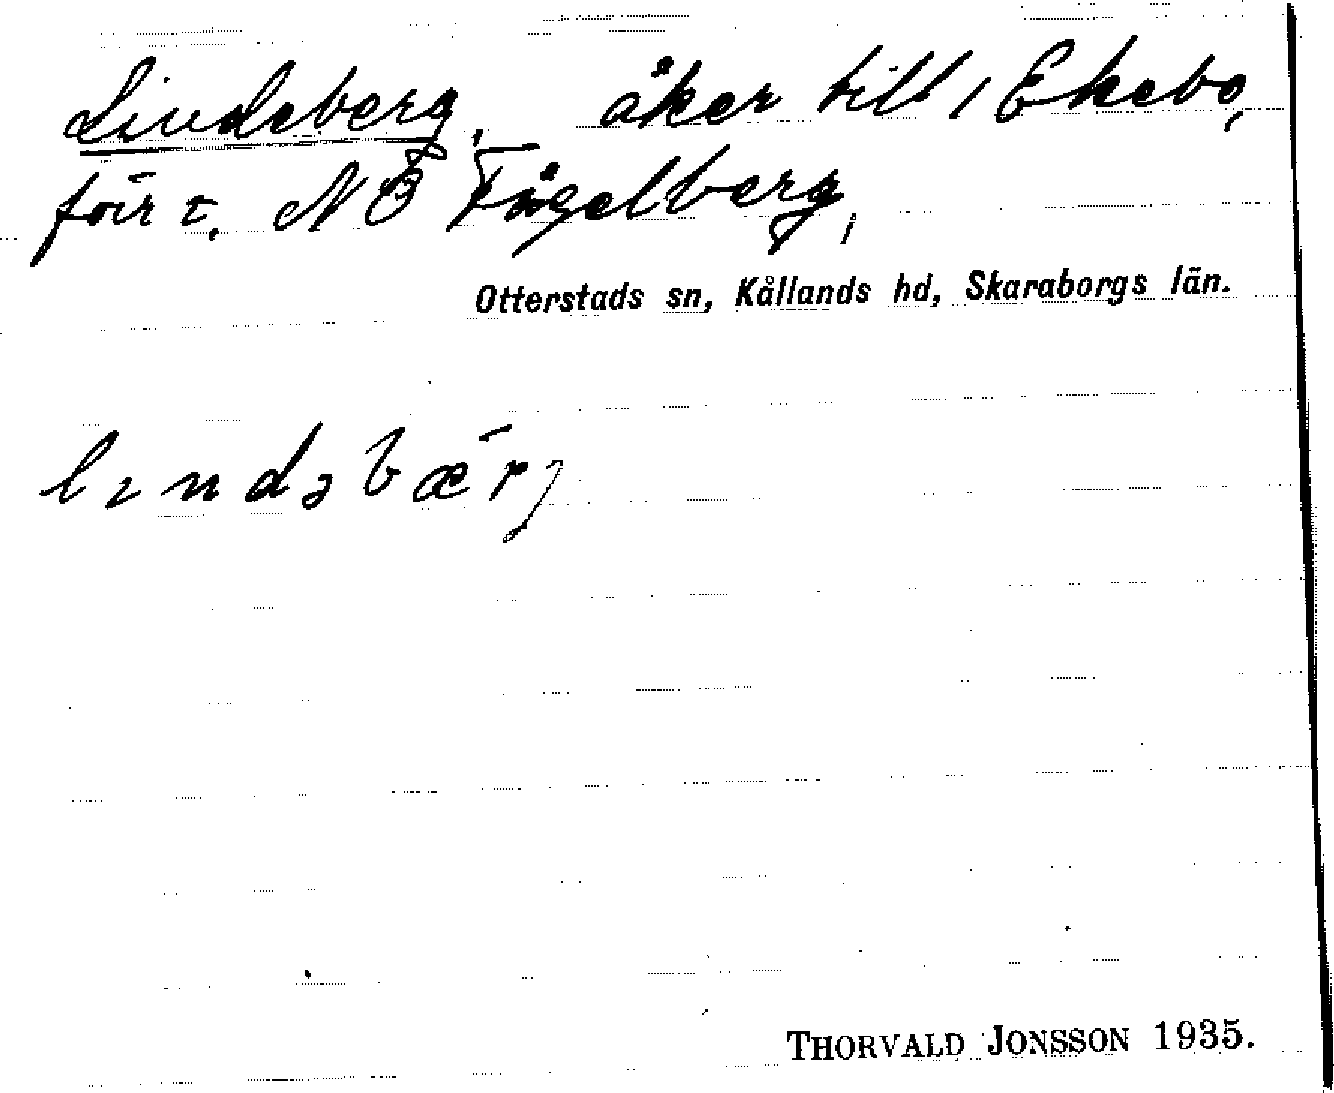 Lindeberg, åker till 1 Ekebo,
förr t. NÖ Fågelberg,
Otterstads sn, Kållands hd, Skaraborgs län.
lındəbærj
THORVALD JONSSON 1935.